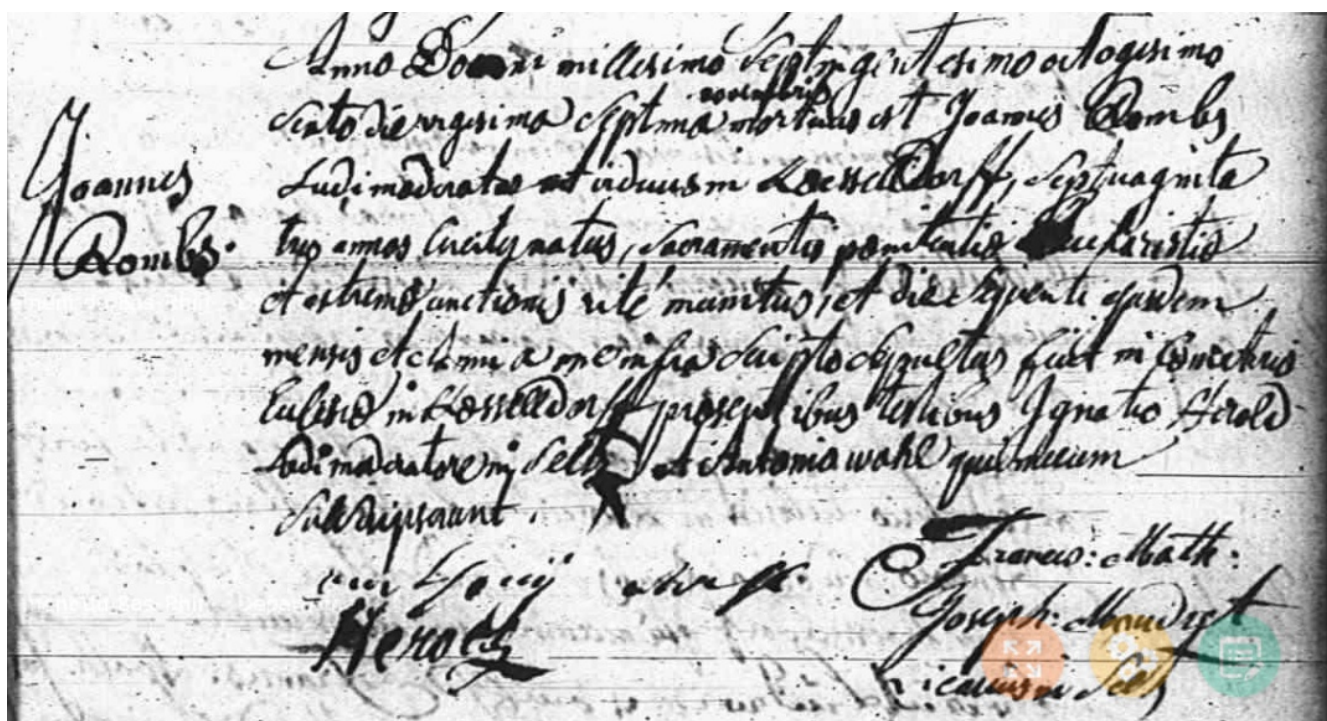 Anno Domini millesimo Septingentesimo octogesimo
Sexto die vigesima Septima novembris mortuus est Joannes Rombs
Joannes
Rombs.
Ludimoderator et viduus in Kesselldorff, Septuaginta
tres annos circiter natus, Sacramentis poenitentiae Eucharistiae
et extremae unctionis rite munitus, et die sequenti ejusdem
mensis et anni a me infra scripto Sepultus fuit in Coemeterio
Ecclesiae in Kesselldorff praesentibus testibus Ignatio Herold
ludimoderatore in Seltz et Antonio wahl qui mecum
Subscripserunt.
Francis: Math:
Joseph:
Herold
vicarius in Seltz